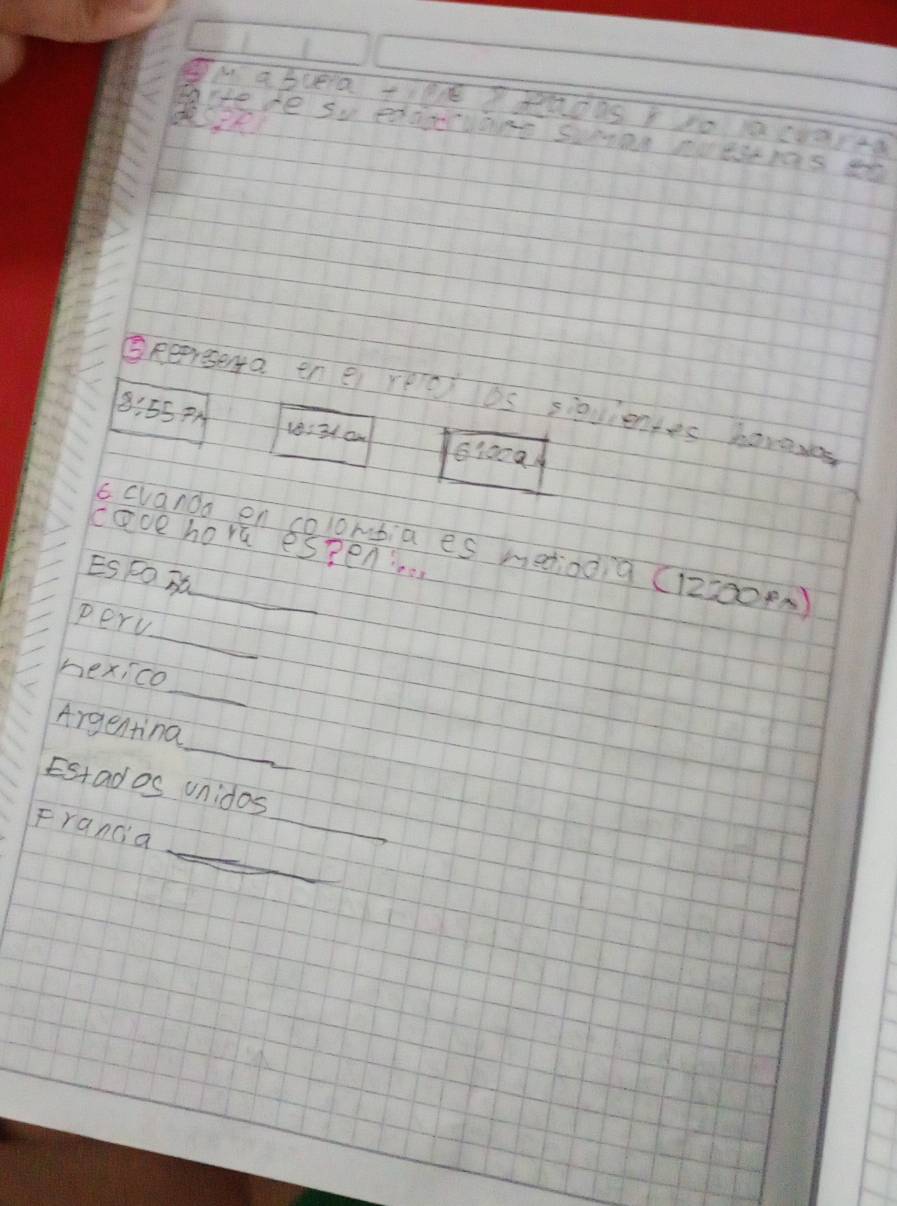 ④ Mi abuela tiene 7 decadas y yo la cuarta
parte de su edad cuanto suman nuestras
⑤ Representa en el reloj los siguientes horarios
8:55 PM
10:31 am
6:00 a
6. cuando en colombia es mediodia (12:00 PM)
¿Que hora es? en:...
España
Peru
mexico
Argentina
Estados unidos
Francia